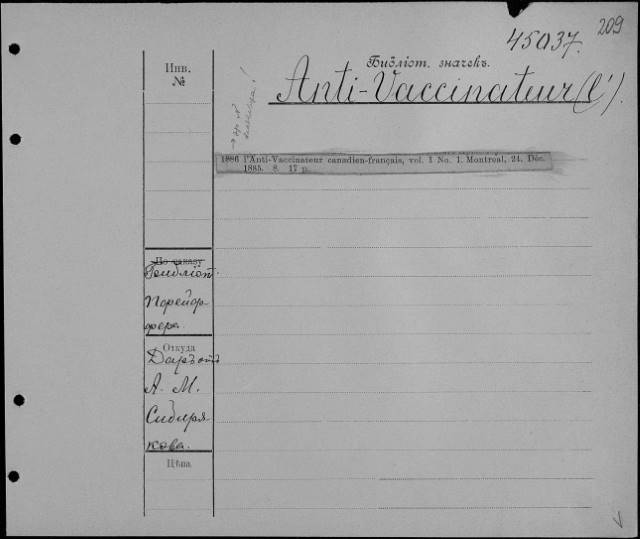 209
45037.
Инв.
№
Библіот. значекъ.
Anti-Vaccinateur (l').
1886 l'Anti-Vaccinateur canadien-français, vol. 1 No. 1. Montreal, 24. Déc.
1885. 8. 17 p.
По заказу
Библіот.
Порейор-
фера
Откуда
Даръ отъ
А. М.
Сибиря-
кова.
Цѣна.